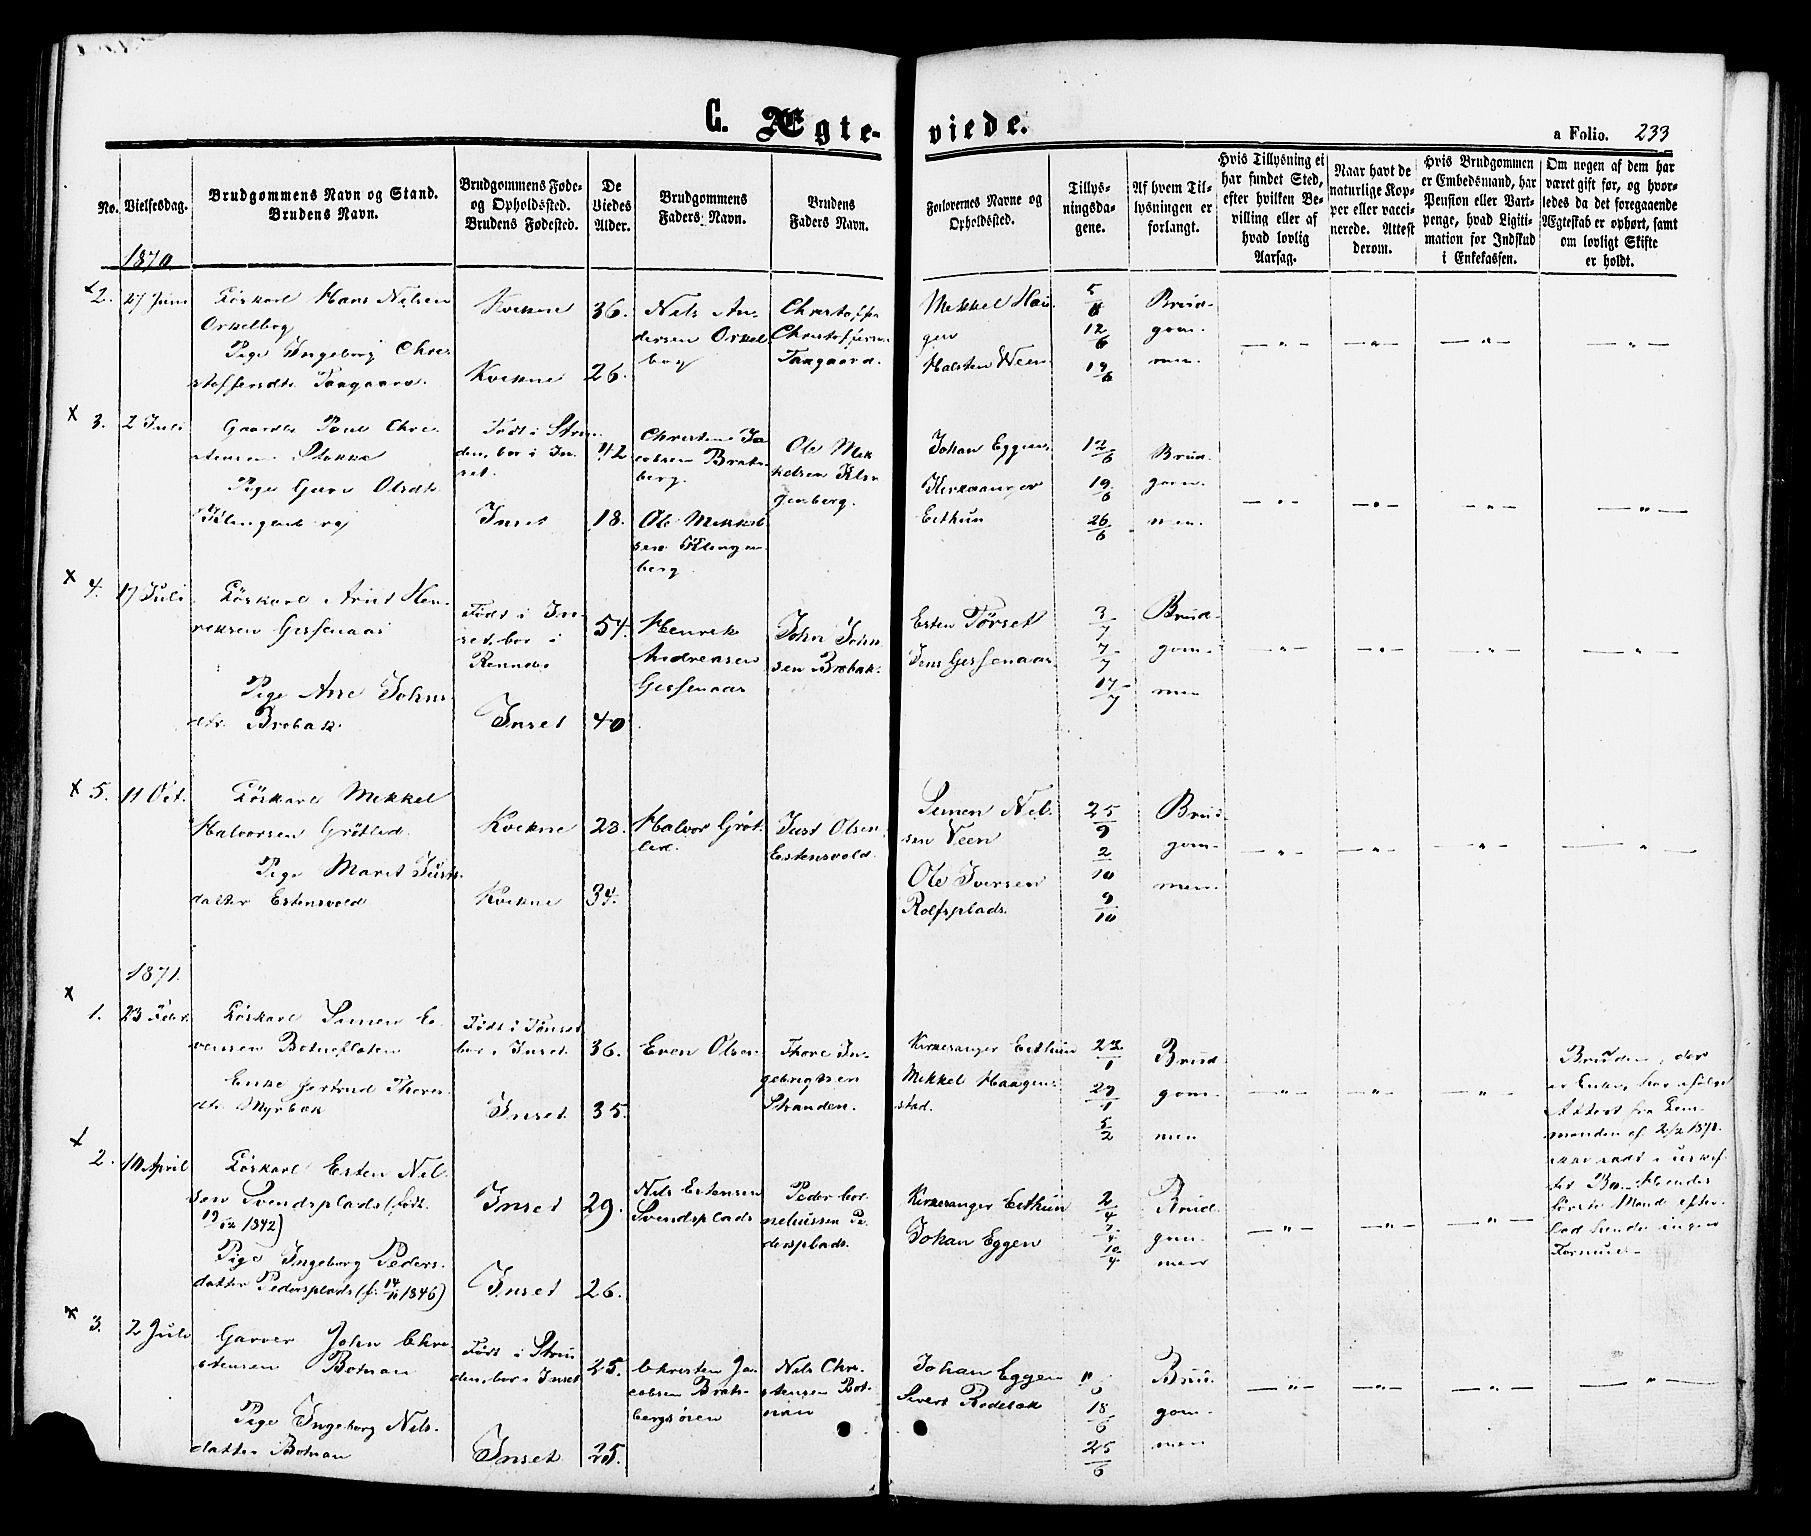 C. Ægte-
viede.
a Folio. 233
No.
Vielsesdag.
Brudgommens Navn og Stand.
Brudens Navn.
Brudgommens Føde-
og Opholdssted.
Brudens Fødested.
De
Viedes
Alder.
Brudgommens
Faders Navn.
Brudens
Faders Navn.
Forlovernes Navne og
Opholdssted.
Tillys-
ningsda-
gene.
Af hvem Til-
lysningen er
forlangt.
Hvis Tillysning ei
har fundet Sted,
efter hvilken Be-
villing eller af
hvad lovlig
Aarsag.
Naar havt de
naturlige Kop-
per eller vacci-
nerede. Attest
derom.
Hvis Brudgommen
er Embedsmand, har
Pension eller Vart-
penge, hvad Ligiti-
mation for Indskud
i Enkekassen.
Om nogen af dem har
været gift før, og hvor-
ledes da det foregaaende
Ægteskab er ophørt, samt
om lovligt Skifte
er holdt.
1870
2. 27 Juni
Løskarl Hans Nilsen
Orkelbog
Pige Ingeborg Chri
stoffersdtr Taagaard.
Kvikne
Kvikne
36.
26.
Nils An-
dersen Orkel
bog
Christoffer
Christoffersen
Taagaard.
Mikkel Hau
gen
Halsten Ween
5/6
12/6
19/6
Brud-
gom-
men.
3. 2 Juli
Gaardb. Poul Chri
stensen Stokke
Pige Guru Olsdtr
Klingenberg
Født i Strin
den, bor i In
set.
Inset
42
18.
Christen Ja
cobsen Brats
berg.
Ole Mikkel
sen Klingen
berg.
Ole Mik
kelsen Klin
genberg.
Johan Eggen
Kirkesanger
Eithun
12/6
19/6
26/6
Brud-
gom-
men.
4. 17 Juli
Løskarl Arnt Hen-
riksen Gissenaas
Pige Ane Johns
dtr. Brobak.
Født i In
set, bor i
Rennebo
Inset
54.
40
Henrik
Andreasen
Gissenaas
John John
sen Brobak.
Esten Tørset
Jens Gissenaas
3/7
7/7
17/7
Brud-
gom-
men
5. 11 Oct.
Løskarl Mikkel
Halvorsen Grøtlid.
Pige Marit Justs
datter Estensvold
Kvikne
Kvikne
28.
34.
Halvor Grøt
lid.
Just Olsen
Estensvold.
Simen Nil
sen Veen
Ole Iversen
Rolfsplads.
25/9
2/10
9/10
Brud
gom-
men.
1871.
1. 23 Febr.
Løskarl Simen E-
vensen Botnefloten
Enke Gertrud Thores
dtr. Myrbak
Født i Tønset
bor i Inset.
Inset
36.
35.
Even Olsen
Thore In-
gebrigtsen
Stranden.
Kirkesanger Eithun
Mikkel Haagens
stad.
22/1
29/1
5/2
Brud
gom-
men
Bruden, der
er Enke, har ifølge
Attest fra Lens
manden af 2/2 1871
ikke sadt i uskif
tet Bo. Hendes
første Mand efter
lod hende ingen
Formue.
2. 10 April
Løskarl Esten Nil
sen Svendsplads (født
19/12 1842)
Pige Ingeborg Peders
datter Pedersplads (f. 14/11 1846)
Inset
Inset
29.
26.
Nils Estensen
Svendsplads
Peder Cor
neliussen Pe
dersplads.
Kirkesanger Eithun
Johan Eggen
2/4
7/4
10/4
Brud.
gom-
men
3. 2 Juli
Garver John Chri
stensen Botnan
Pige Ingeborg Nils-
datter Botnan
Født i Strin
den, bor i Inset
Inset
25.
25.
Christen Ja-
cobsen Brats
bergsøren
Nils Chri-
stensen Bot-
nan
Johan Eggen
Sivert Rødebak
11/6
18/6
25/6
Brud
gom-
men